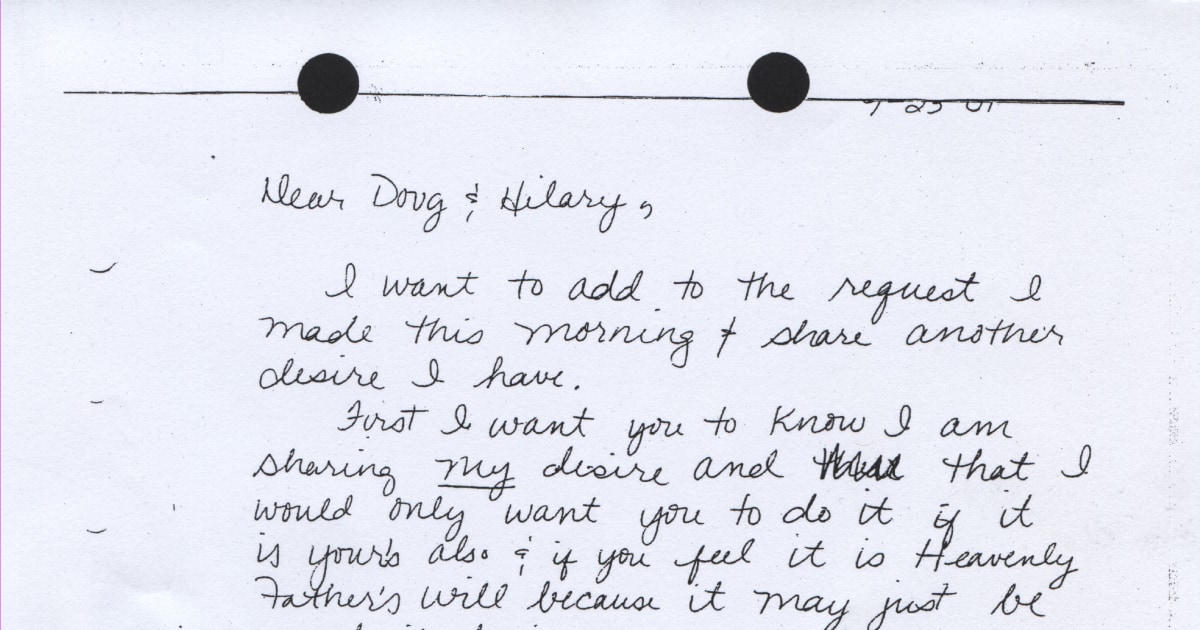 Dear Doug & Hilary,
I want to add to the request I
made this morning & share another
desire I have.
First I want you to know I am
sharing my desire and that I
would only want you to do it if it
is your's also & if you feel it is Heavenly
Father's will because it may just be